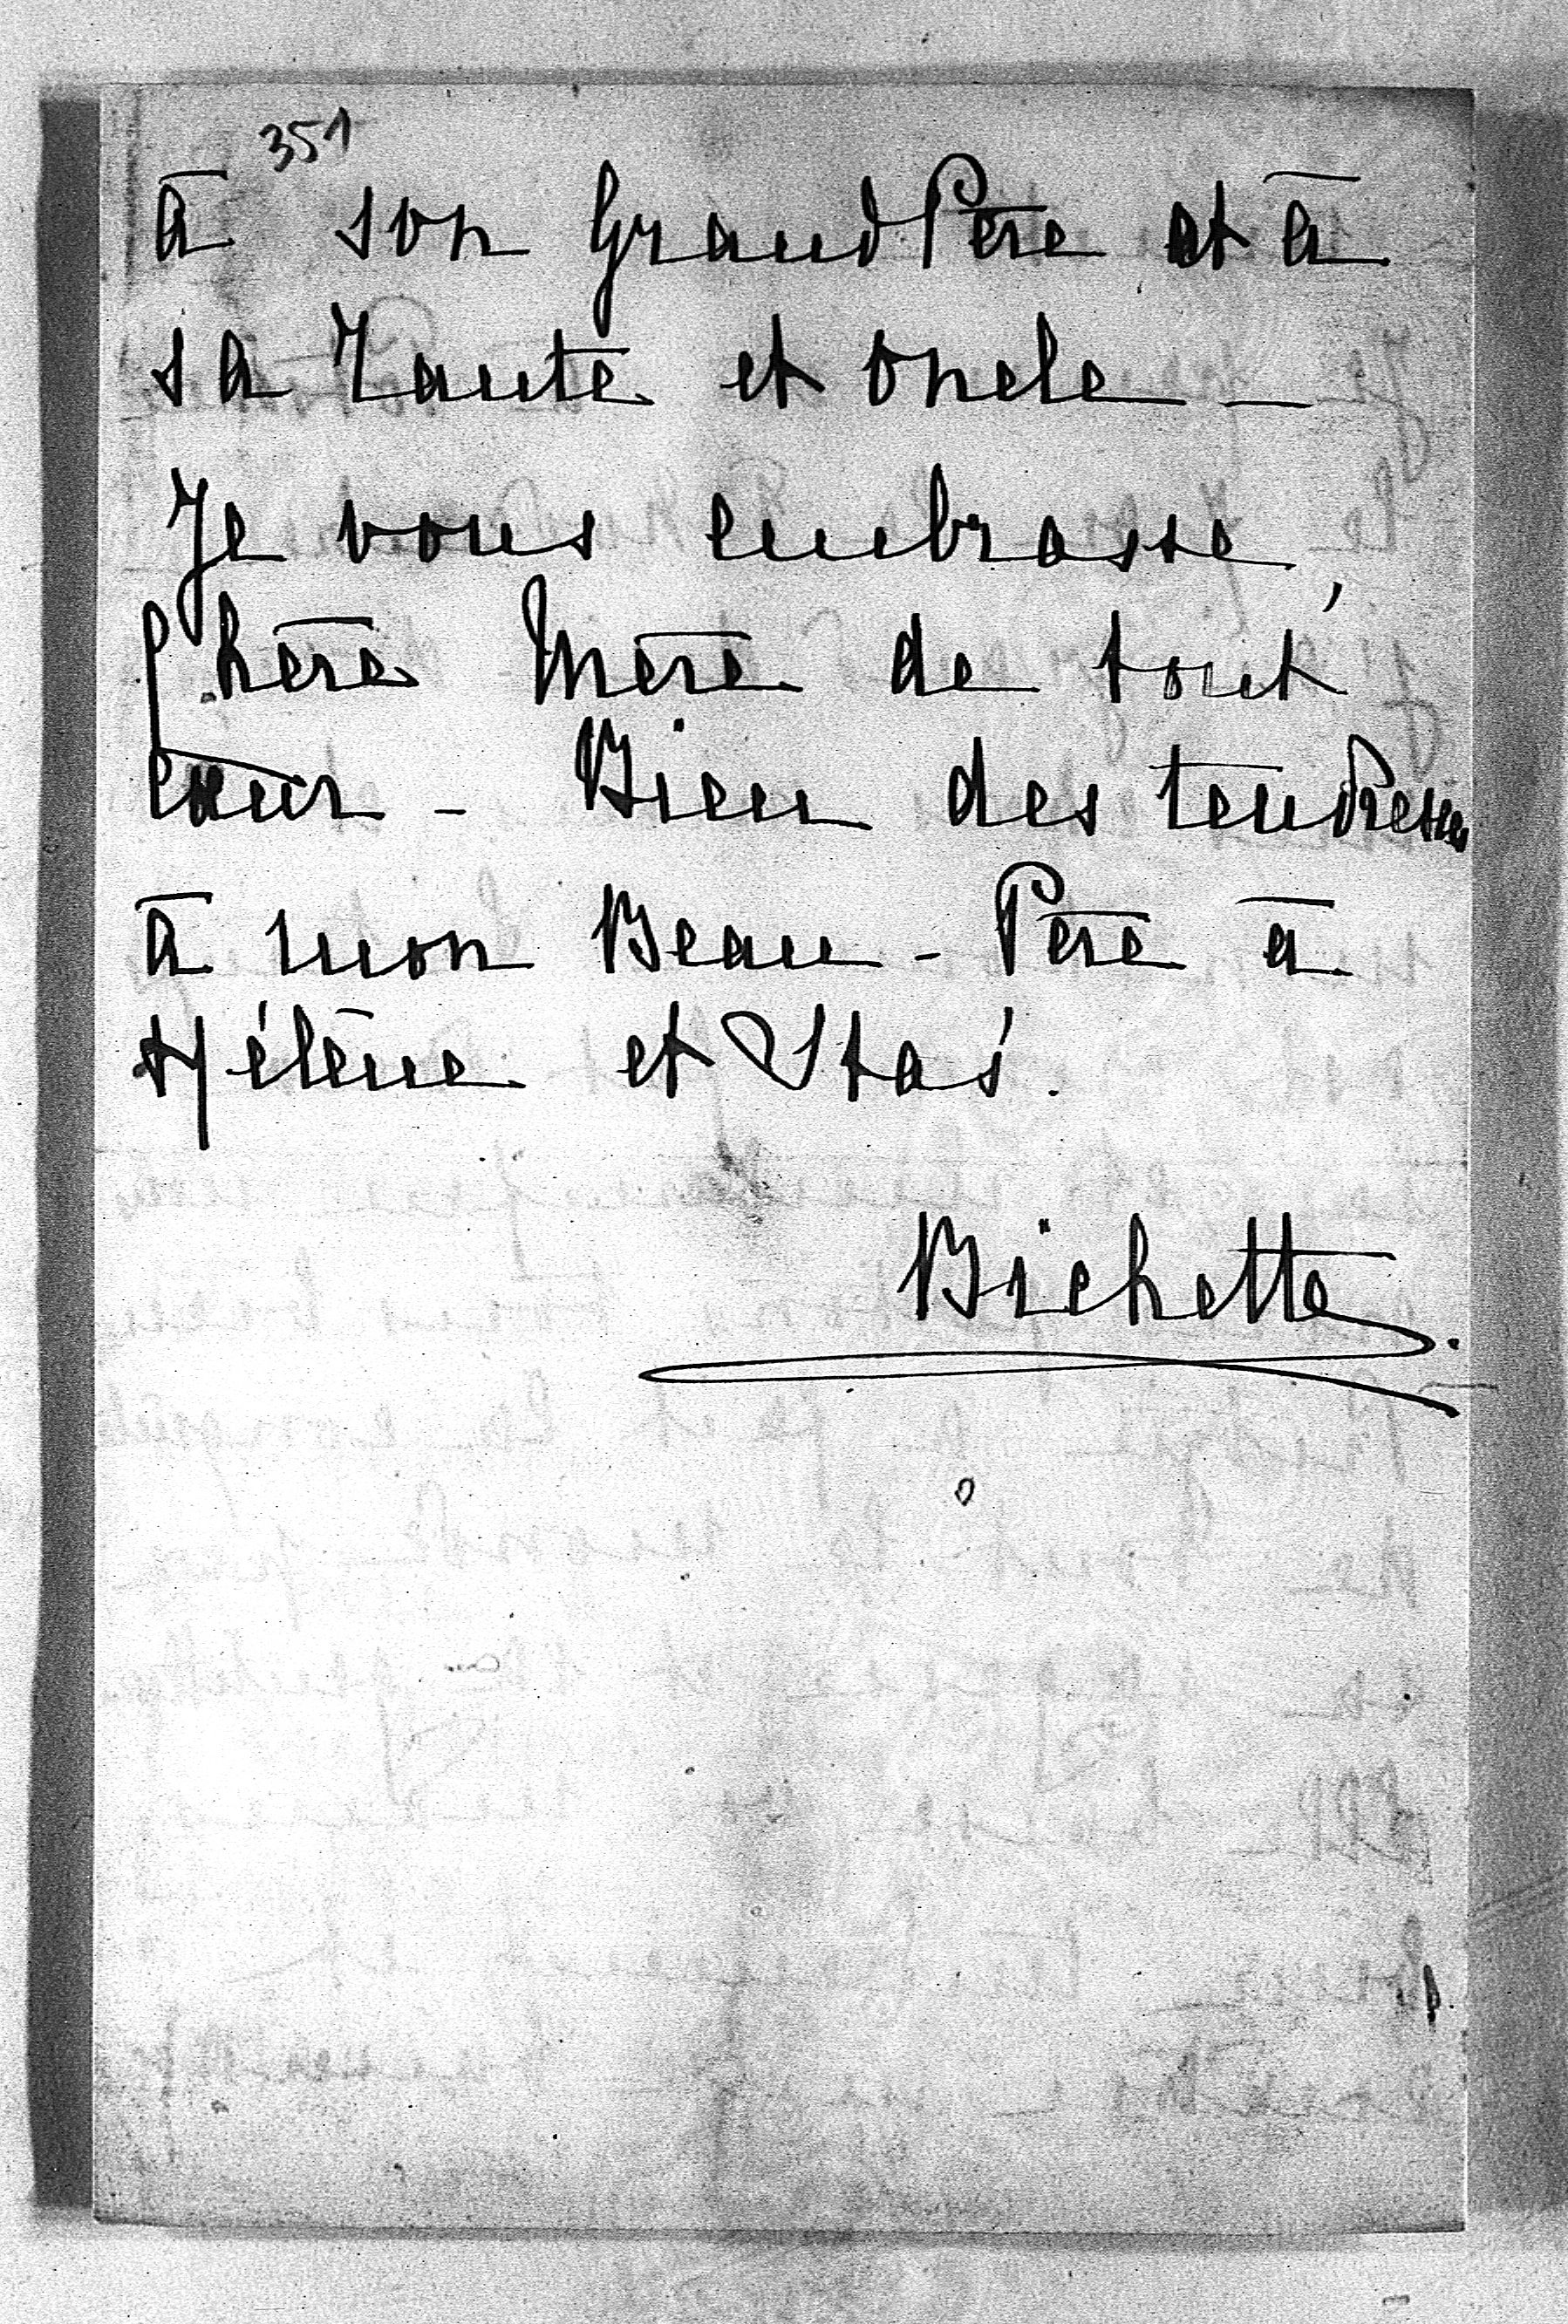 351
à son Grand Père et à
sa Tante et oncle —
Je vous embrasse,
Chère Mère de tout
Cœur - Bien des tendresses
à mon Beau-Père à
Hélène et Staś.
Bichette.